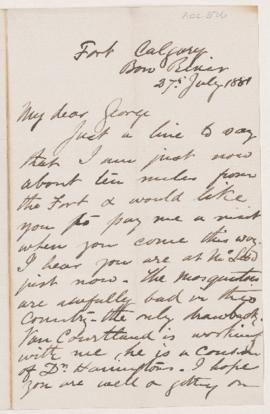 Fort Calgary
Bow River
27th July 1881
My dear George
Just a line to say
that I am just now
about ten miles from
the Fort & would like
you to pay me a visit
when you come this way.
I hear you are at the
just now. The mosquitoes
are awfully bad in this
country - the only drawback.
Van Courtland is working
with me, he is a cousin
of Dr. Harringtons. I hope
you are well & getting on